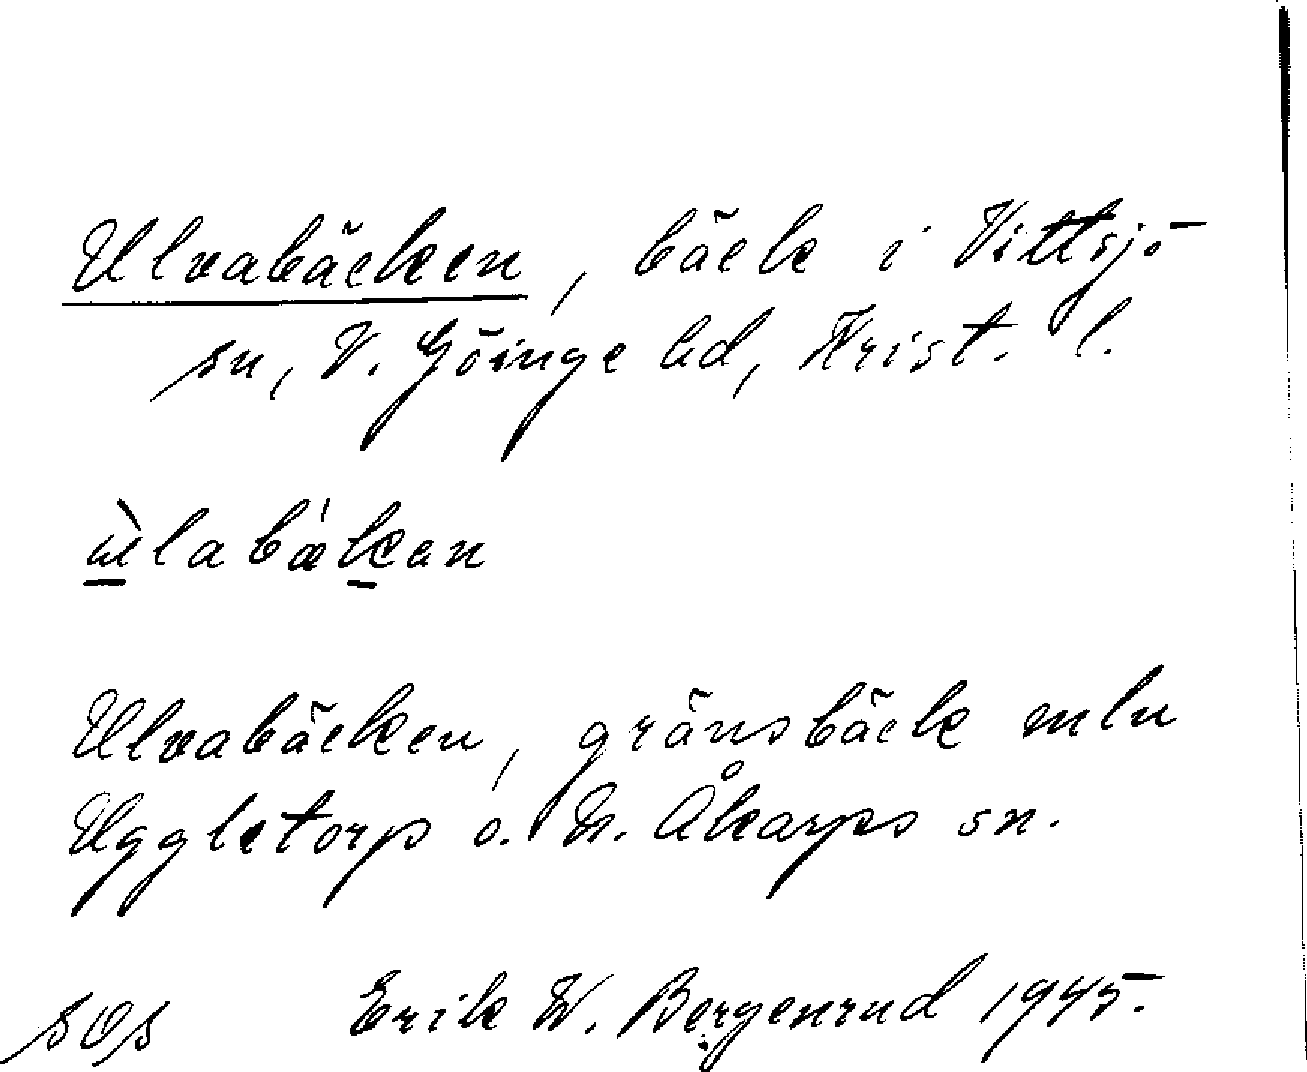 Ulvabäcken, bäck i Vittsjö
sn, V. Göinge hd, Krist. l.
ùlabækan
Ulvabäcken, gränsbäck mln
Uggletorp o. N. Åkarps sn.
sOs Erik W. Bergenrud 1945.